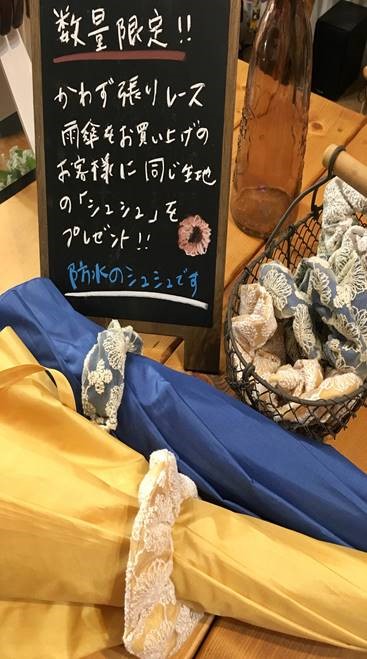 数量限定!!
かわず張りレース
雨傘をお買い上げの
お客様に同じ生地
の「シュシュ」を
プレゼント!!
防水のシュシュです